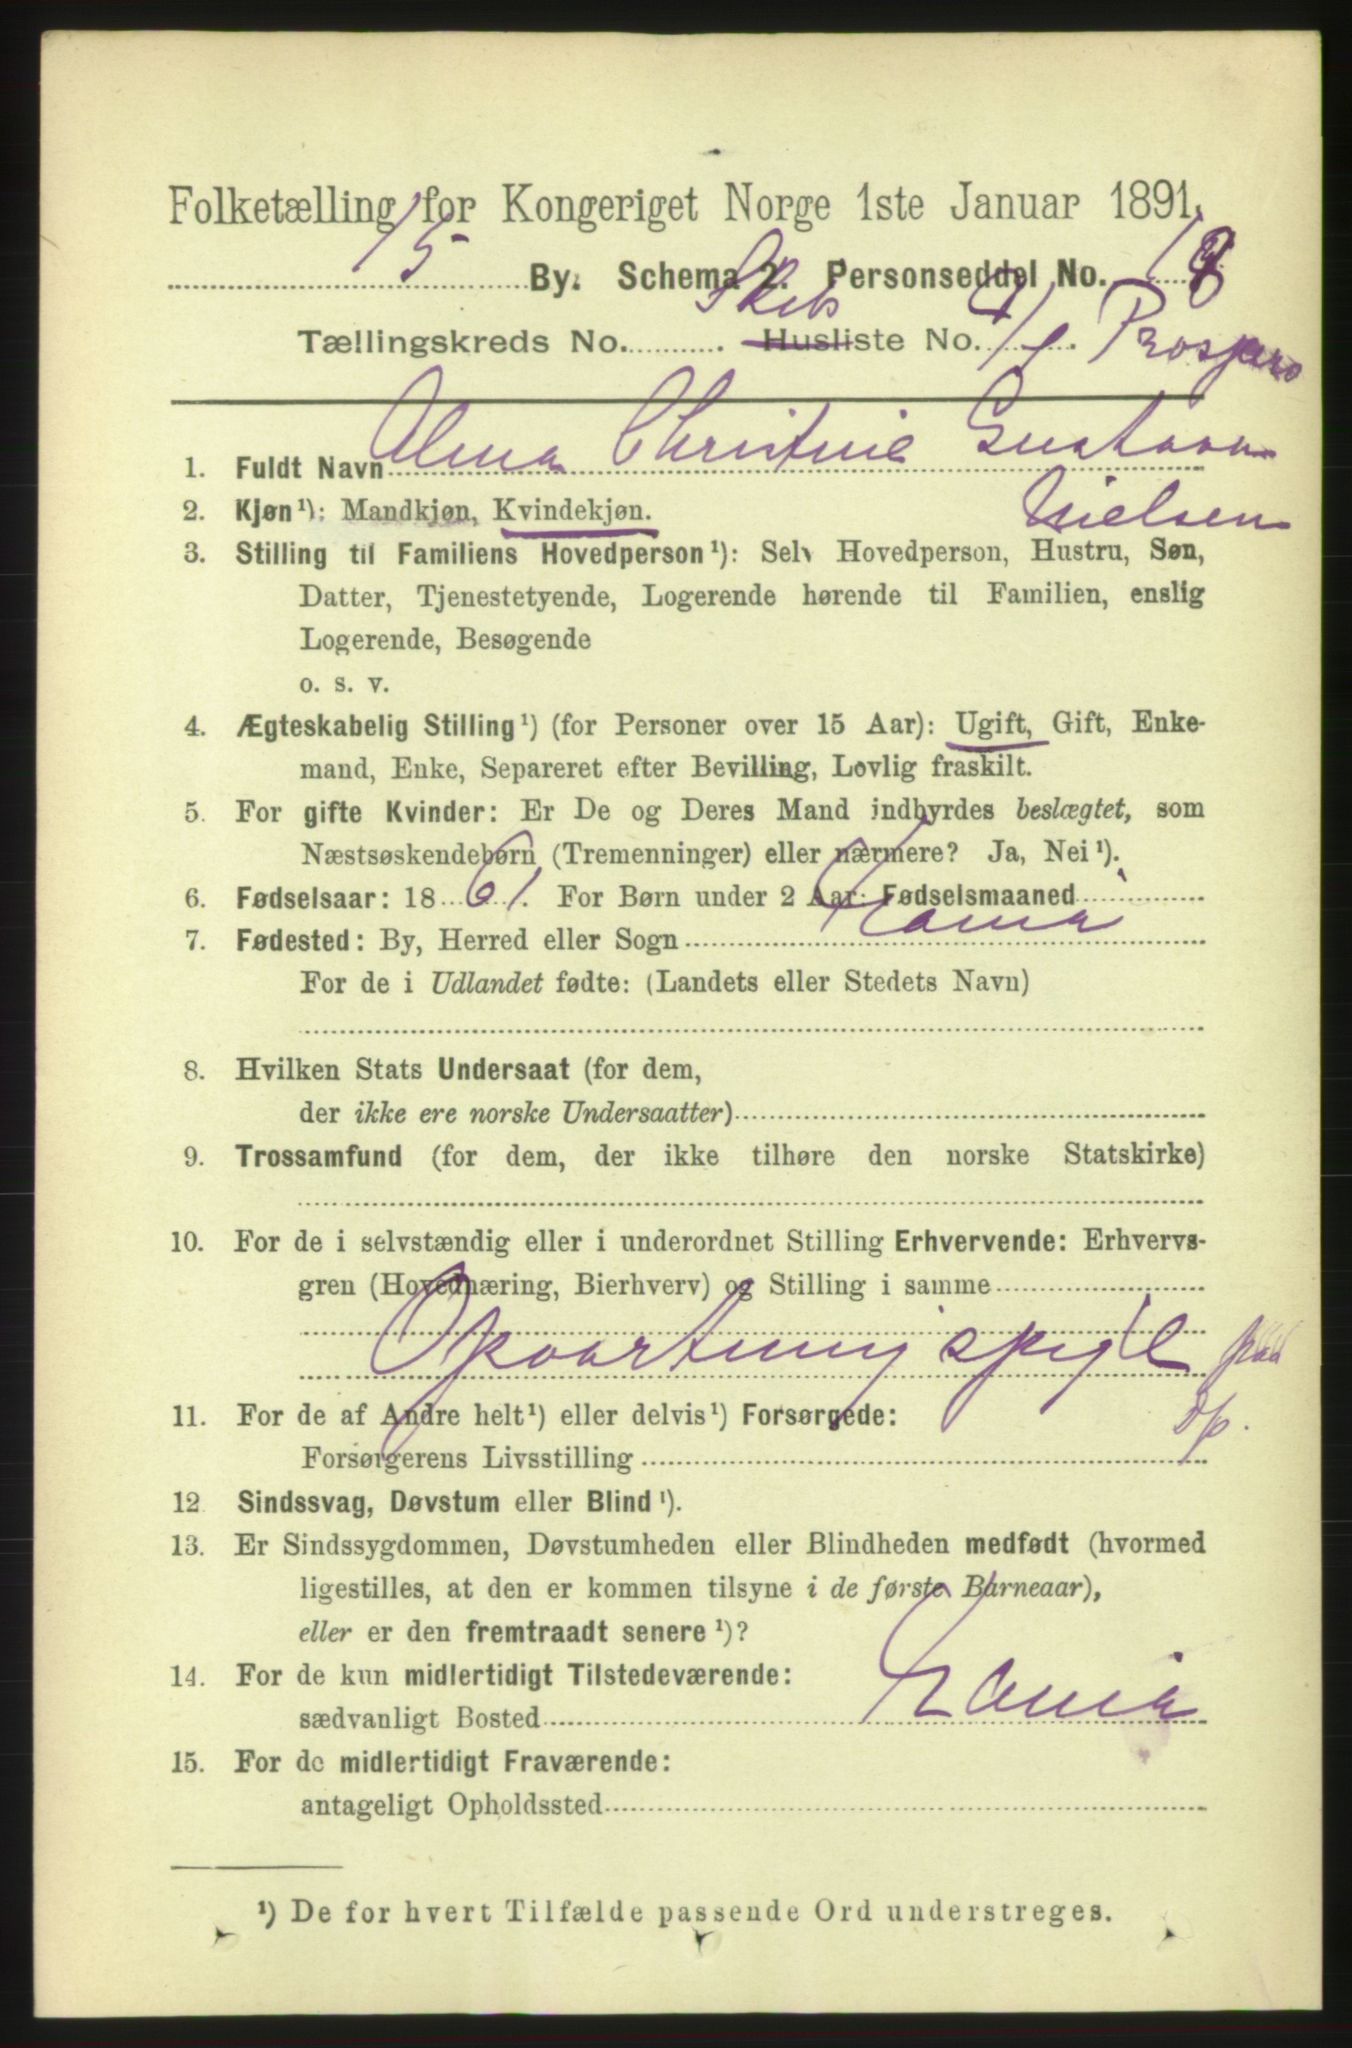 Folketælling for Kongeriget Norge 1ste Januar 1891.
15 By. Schema 2. Personseddel No. 18
Tællingskreds No. Skibsliste No. Prospero
1. Fuldt Navn Alma Christine Gustava
Nielsen
2. Kjøn ¹): Mandkjøn, Kvindekjøn.
3. Stilling til Familiens Hovedperson ¹): Selv Hovedperson, Hustru, Søn,
Datter, Tjenestetyende, Logerende hørende til Familien, enslig
Logerende, Besøgende
o. s. v.
4. Ægteskabelig Stilling ¹) (for Personer over 15 Aar): Ugift, Gift, Enke-
mand, Enke, Separeret efter Bevilling, Lovlig fraskilt.
5. For gifte Kvinder: Er De og Deres Mand indbyrdes beslægtet, som
Næstsøskendebørn (Tremenninger) eller nærmere? Ja, Nei ¹).
6. Fødselsaar: 1861. For Børn under 2 Aar: Fødselsmaaned
7. Fødested: By, Herred eller Sogn Xania
For de i Udlandet fødte: (Landets eller Stedets Navn)
8. Hvilken Stats Undersaat (for dem,
der ikke ere norske Undersaatter)
9. Trossamfund (for dem, der ikke tilhøre den norske Statskirke)
10. For de i selvstændig eller i underordnet Stilling Erhvervende: Erhvervs-
gren (Hovednæring, Bierhverv) og Stilling i samme
Opvartningspige
11. For de af Andre helt ¹) eller delvis ¹) Forsørgede:
Forsørgerens Livsstilling
12. Sindssvag, Døvstum eller Blind ¹).
13. Er Sindssygdommen, Døvstumheden eller Blindheden medfødt (hvormed
ligestilles, at den er kommen tilsyne i de første Barneaar),
eller er den fremtraadt senere ¹)?
14. For de kun midlertidigt Tilstedeværende:
sædvanligt Bosted Xania
15. For de midlertidigt Fraværende:
antageligt Opholdssted
¹) De for hvert Tilfælde passende Ord understreges.